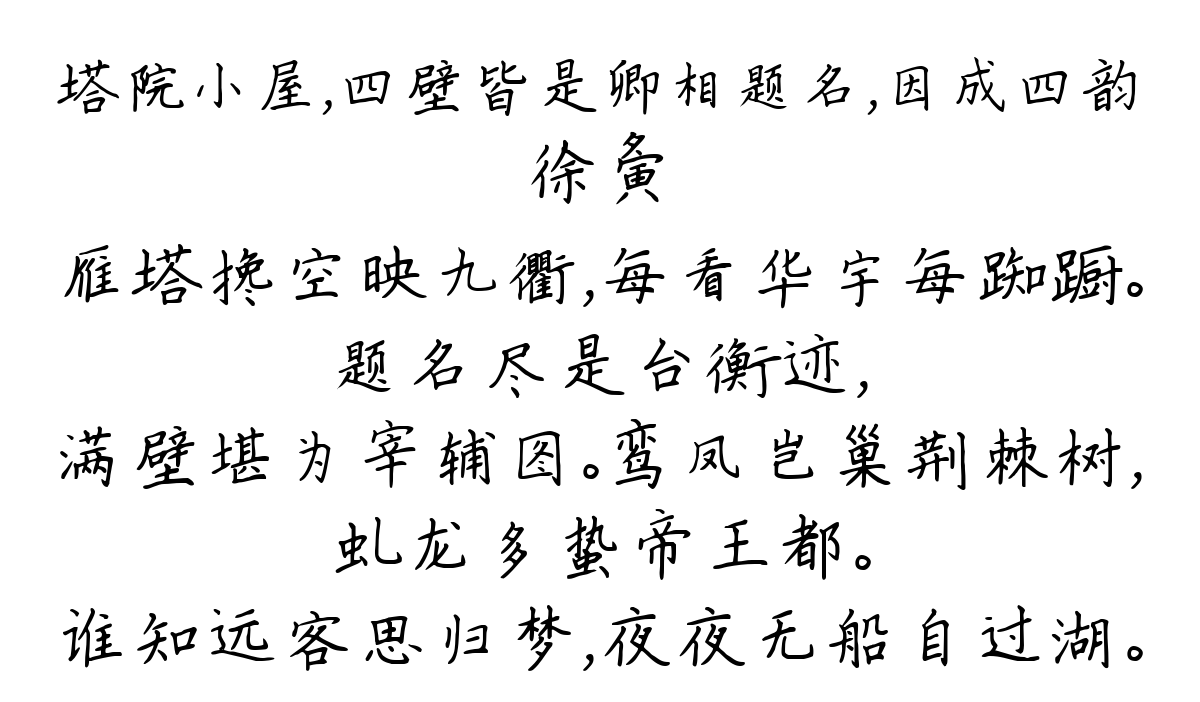 塔院小屋,四壁皆是卿相题名,因成四韵
徐夤
雁塔搀空映九衢,每看华宇每踟蹰。
题名尽是台衡迹,
满壁堪为宰辅图。鸾凤岂巢荆棘树,
虬龙多蛰帝王都。
谁知远客思归梦,夜夜无船自过湖。